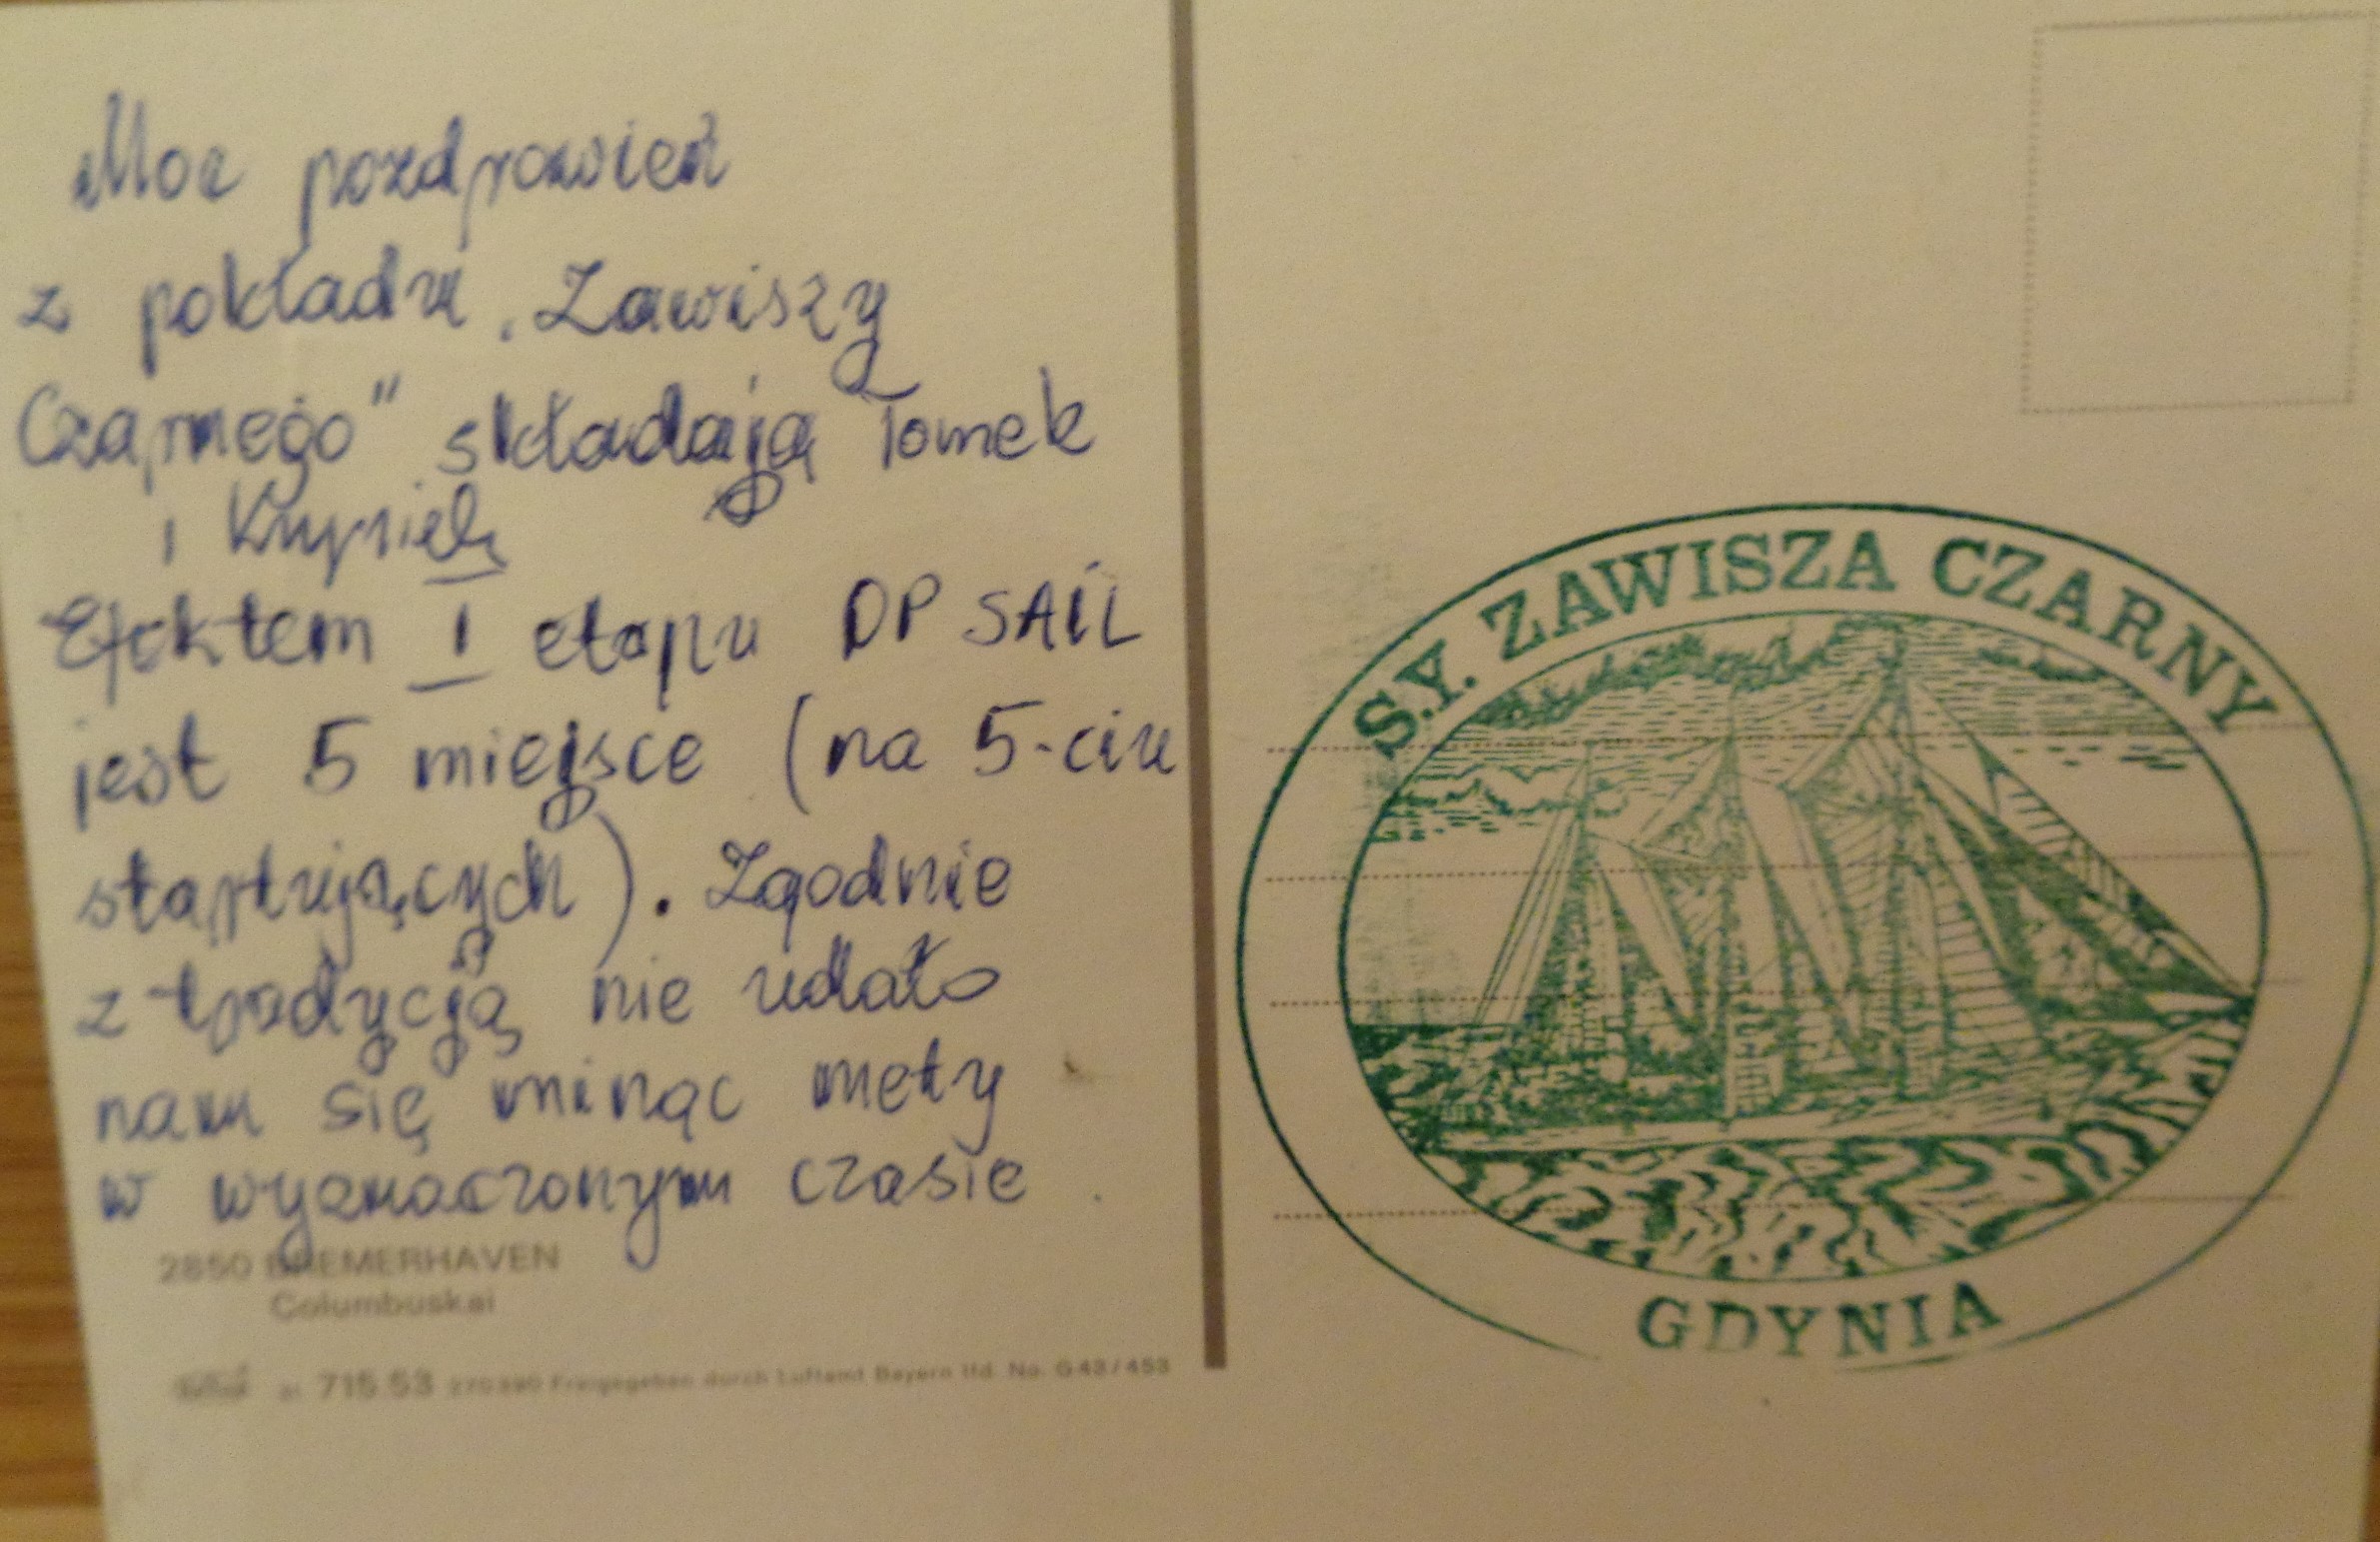 Moc pozdrowień
z pokładu „Zawiszy
Czarnego" składają Tomek
i Krysiek
Efektem I etapu OP SAIL
jest 5 miejsce (na 5-ciu
startujących). Zgodnie
z tradycją nie udało
nam się minąć mety
w wyznaczonym czasie.
2850 BREMERHAVEN
Columbuskai
715.53 270390 Freigegeben durch Luftamt Bayern lfd. No. G43/453
S.Y. ZAWISZA CZARNY
GDYNIA